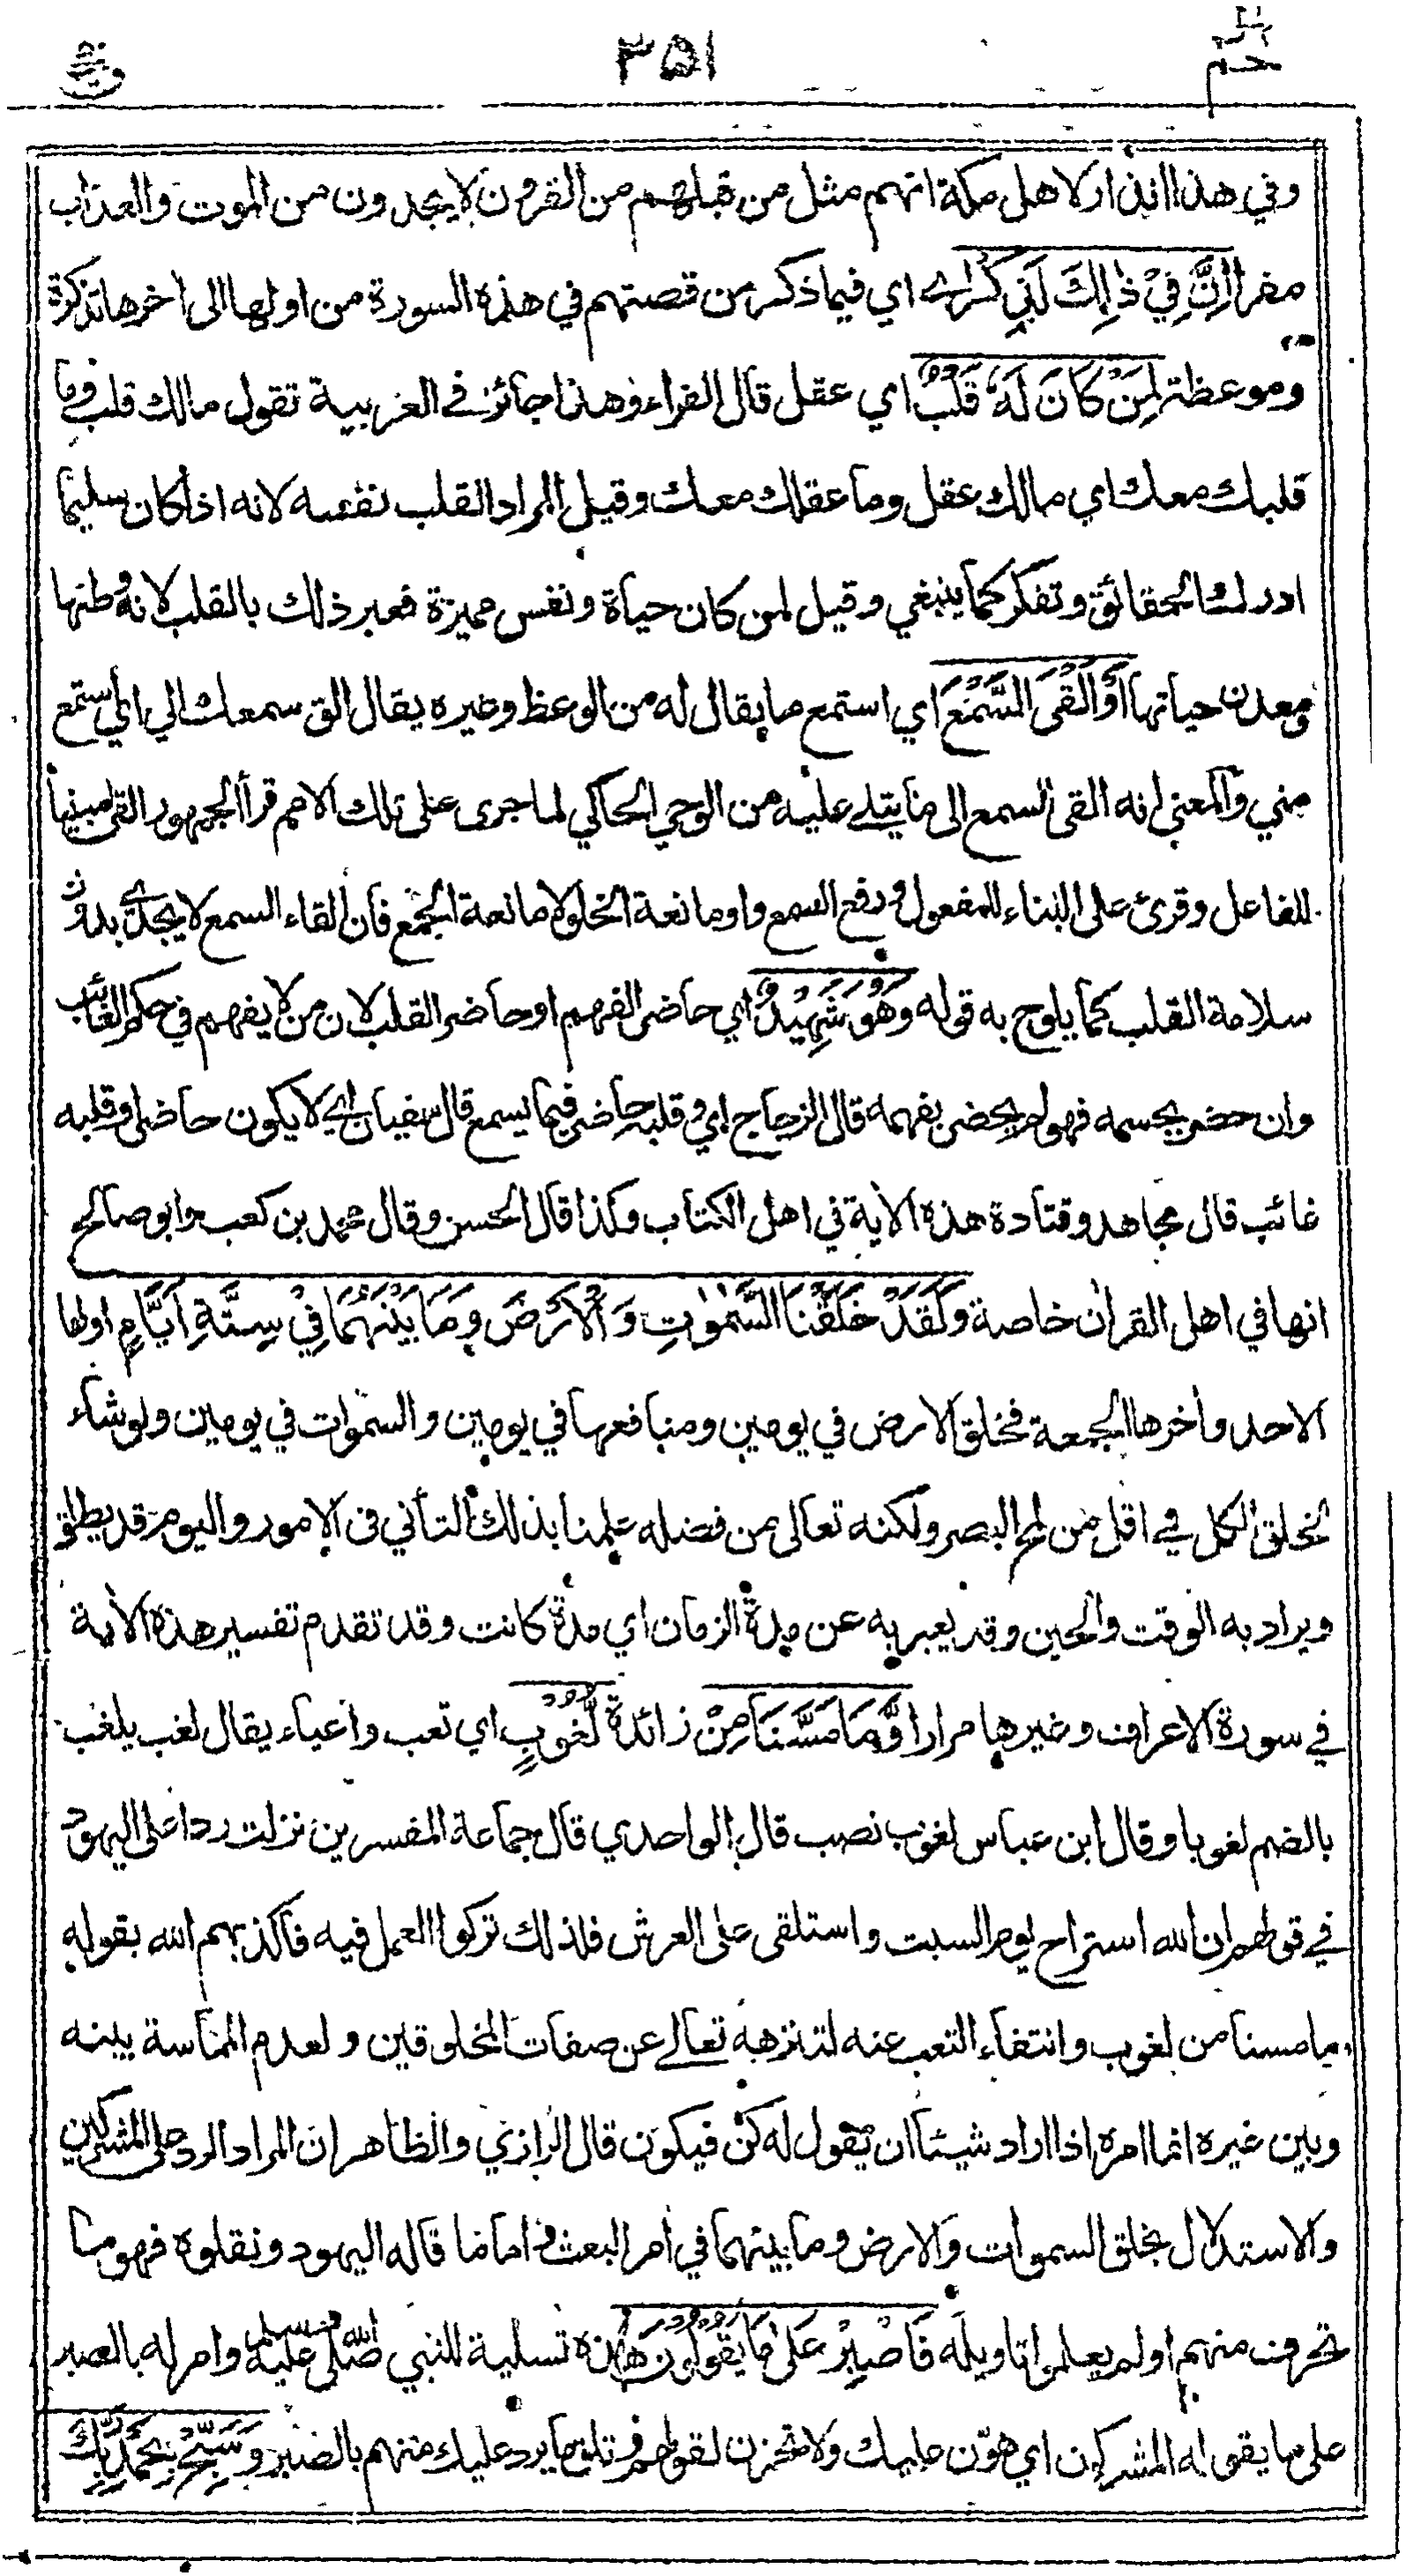 حـم ٣٥١ ق
وفي هذا انذار لاهل مكة انهم مثل من قبلهم من القرون لا يجدون من الموت والعذاب
مفرا اِنَّ فِيْ ذٰلِكَ لَذِكْرٰے اي فيما ذكر من قصتهم في هذه السورة من اولها الى اخرها تذكرة
وموعظة لِمَنْ كَانَ لَهٗ قَلْبٌ اي عقل قال الفراء وهذا جائز في العربية تقول مالك قلب وما
قلبك معك اي مالك عقل وما عقلك معك وقيل المراد القلب نفسه لانه اذا كان سليما
ادرك الحقائق وتفكر كما ينبغي وقيل لمن كان حياة ونفس مميزة فعبر ذلك بالقلب لانه وطنها
ومعدن حياتها اَوْ اَلْقَى السَّمْعَ اي استمع ما يقال له من الوعظ وغيره يقال الق سمعك الي اي استمع
مني والمعنى انه القى السمع الى ما يتلے عليه من الوحي الحاكي لما جرى على تلك الامم قرأ الجمهور القى مبنيا
للفاعل وقرئ على البناء للمفعول ورفع السمع واو مانعة الخلو لا مانعة الجمع فان القاء السمع لا يجدي بدون
سلامة القلب كما يلوح به قوله وَهُوَ شَهِيْدٌ اي حاضر الفهم او حاضر القلب لان من لا يفهم في حكم الغائب
وان حضر بجسمه فهو لم يحضر بفهمه قال الزجاج اي وقلبه حاضر فيما يسمع قال سفيان اي لا يكون حاضرا وقلبه
غائب قال مجاهد وقتادة هذه الاٰية في اهل الكتاب وكذا قال الحسن وقال محمد بن كعب وابو صالح
انها في اهل القراٰن خاصة وَلَقَدْ خَلَقْنَا السَّمٰوٰتِ وَالْاَرْضَ وَمَا بَيْنَهُمَا فِيْ سِتَّةِ اَيَّامٍ اولها
الاحد واٰخرها الجمعة فخلق الارض في يومين ومنافعها في يومين والسمٰوات في يومين ولو شاء
لخلق الكل في اقل من لمح البصر ولكنه تعالى من فضله علمنا بذلك التأني فى الامور واليوم قد يطلق
ويراد به الوقت والحين وقد يعبر به عن مدة الزمان اي مدة كانت وقد تقدم تفسير هذه الاٰية
في سورة الاعراف وغيرها مرارا وَّمَا مَسَّنَا مِنْ زائدة لُّغُوْبٍ اي تعب واعياء يقال لغب يلغب
بالضم لغوبا وقال ابن عباس لغوب نصب قال الواحدي قال جماعة المفسرين نزلت ردا على اليهود
في قولهم ان الله استراح يوم السبت واستلقى على العرش فلذلك تركوا العمل فيه فاكذبهم الله بقوله
ما مسنا من لغوب وانتفاء التعب عنه لتنزهه تعالے عن صفات المخلوقين ولعدم المماسة بينه
وبين غيره انما امره اذا اراد شيئا ان يقول له كن فيكون قال الرازي والظاهر ان المراد الرد على المشركين
والاستدلال بخلق السموات والارض وما بينهما في امر البعث واما ما قاله اليهود ونقلوه فهو مما
تحرف منهم او لم يعلموا تاويله فَاصْبِرْ عَلٰى مَا يَقُوْلُوْنَ هذه تسلية للنبي صلى الله عليه وسلم وامر له بالصبر
على ما يقوله المشركون اي هوّن عليك ولا تحزن لقولهم وتلق ما يرد عليك منهم بالصبر وَسَبِّحْ بِحَمْدِ رَبِّكَ